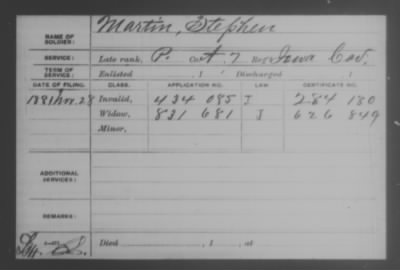 Martin, Stephen
NAME OF SOLDIER:
SERVICE: Late rank, P. Co. A, 7 Reg't Iowa Cav.
TERM OF SERVICE: Enlisted , 1 Discharged , 1
DATE OF FILING. CLASS. APPLICATION NO. LAW CERTIFICATE NO.
1881 Nov. 28 Invalid, 434 085 J 284 180
Widow, 831 681 J 626 849
Minor,
ADDITIONAL SERVICES:
REMARKS:
Died , 1 , at